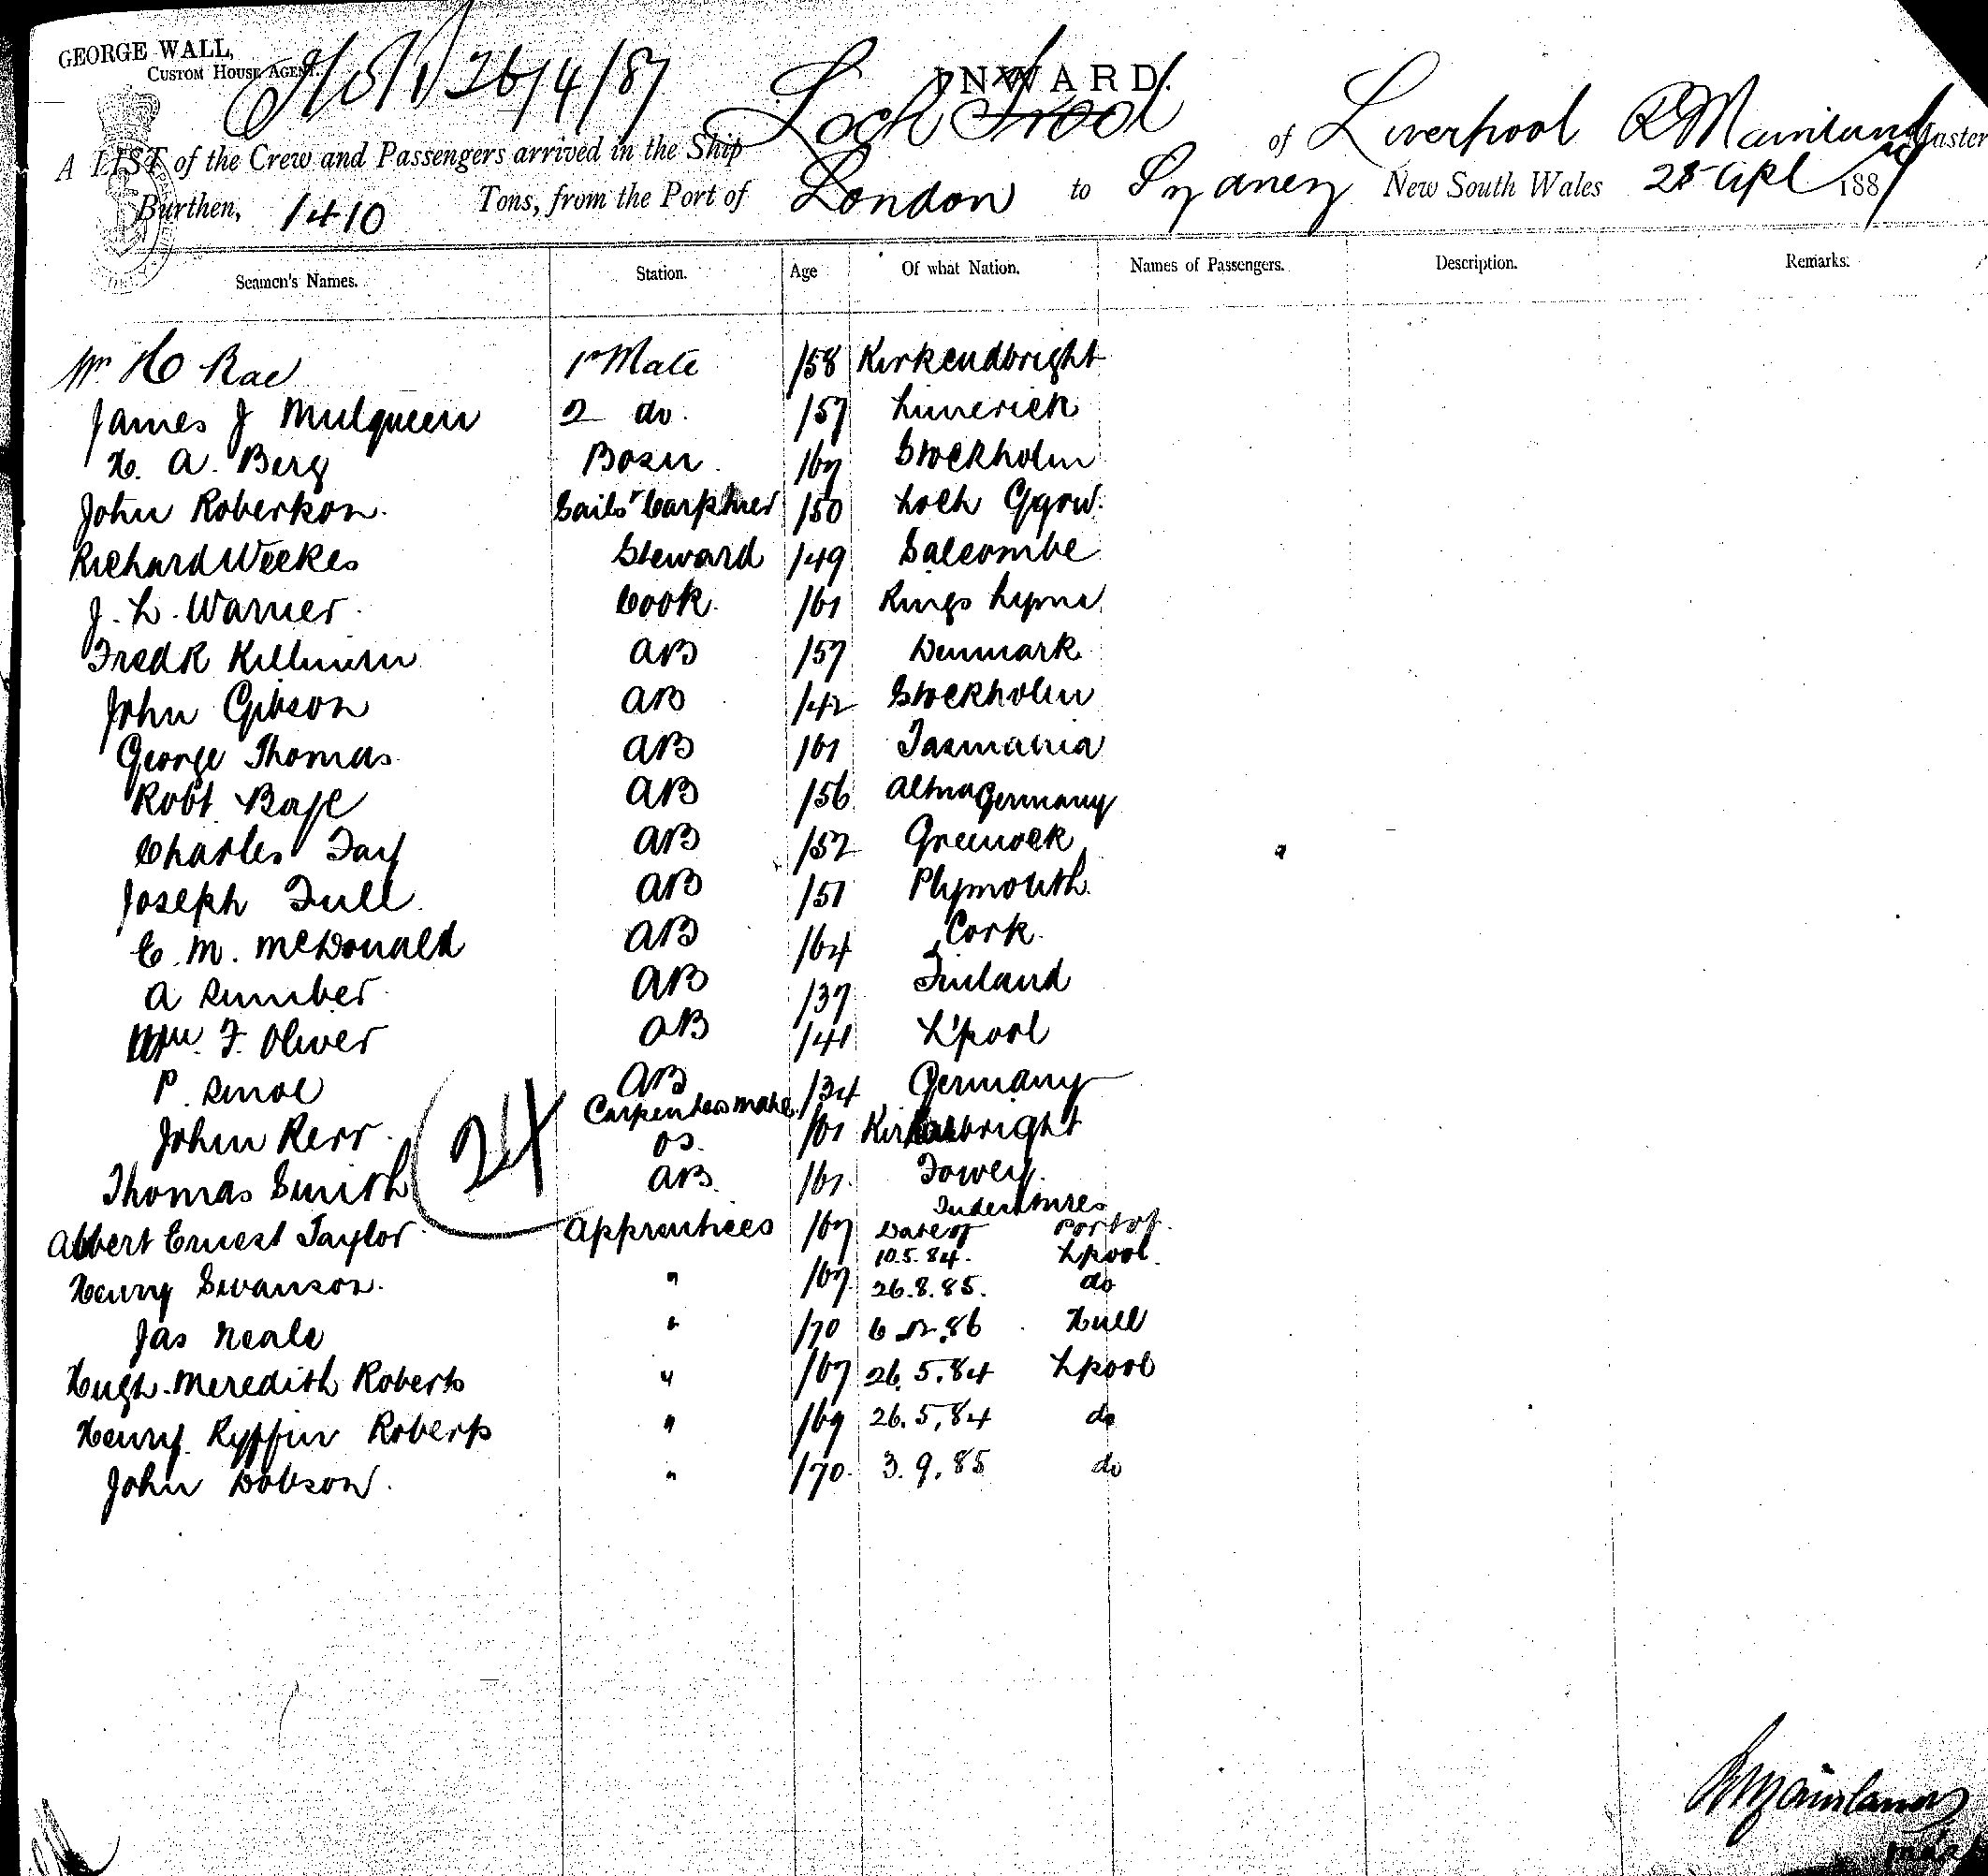 GEORGE WALL,
CUSTOM HOUSE AGENT.
26/4/87
INWARD.
A LIST of the Crew and Passengers arrived in the Ship Loch of Liverpool R Mainland Master
Burthen, 1410 Tons, from the Port of London to Sydney New South Wales 25 Apl 1887
Seamen's Names. Station. Age Of what Nation. Names of Passengers. Description. Remarks.
Wm H Rae 1st Mate /58 Kirkcudbright
James J Mulqueen 2 do. /57 Limerick
H. A. Berg Bosn /67 Stockholm
John Robertson. Sailr Carpnter /50 Loch
Richard Weekes Steward /49 Salcombe
J. L. Warner. Cook. /61 Kings Lynn
Fredk AB /57 Denmark
John Gibson AB /42 Stockholm
George Thomas AB /61 Tasmania
Robt. AB /56 Altna Germany
Charles AB /52 Greenock
Joseph Tull AB /51 Plymouth.
C. M. McDonald AB /64 Cork.
A AB /37 Finland
Wm. F. Oliver AB /41 L'pool
P. AB /34 Germany
Carpenters mate
John Kerr. OS. /61 Kirkcudbright
24
Thomas Smith AB. /61. Fowey.
Indentures
Albert Ernest Taylor Apprentices /67 Date of Port of.
10.5.84. Lpool.
Henry Swanson. " /67. 26.8.85. do
Jas Neale " /70 6.12.86 Hull
Hugh Meredith Roberts " /67 26.5.84 Lpool
Henry Roberts " /69 26.5.84 do
John Dobson. " /70. 3.9.85 do
R Mainland